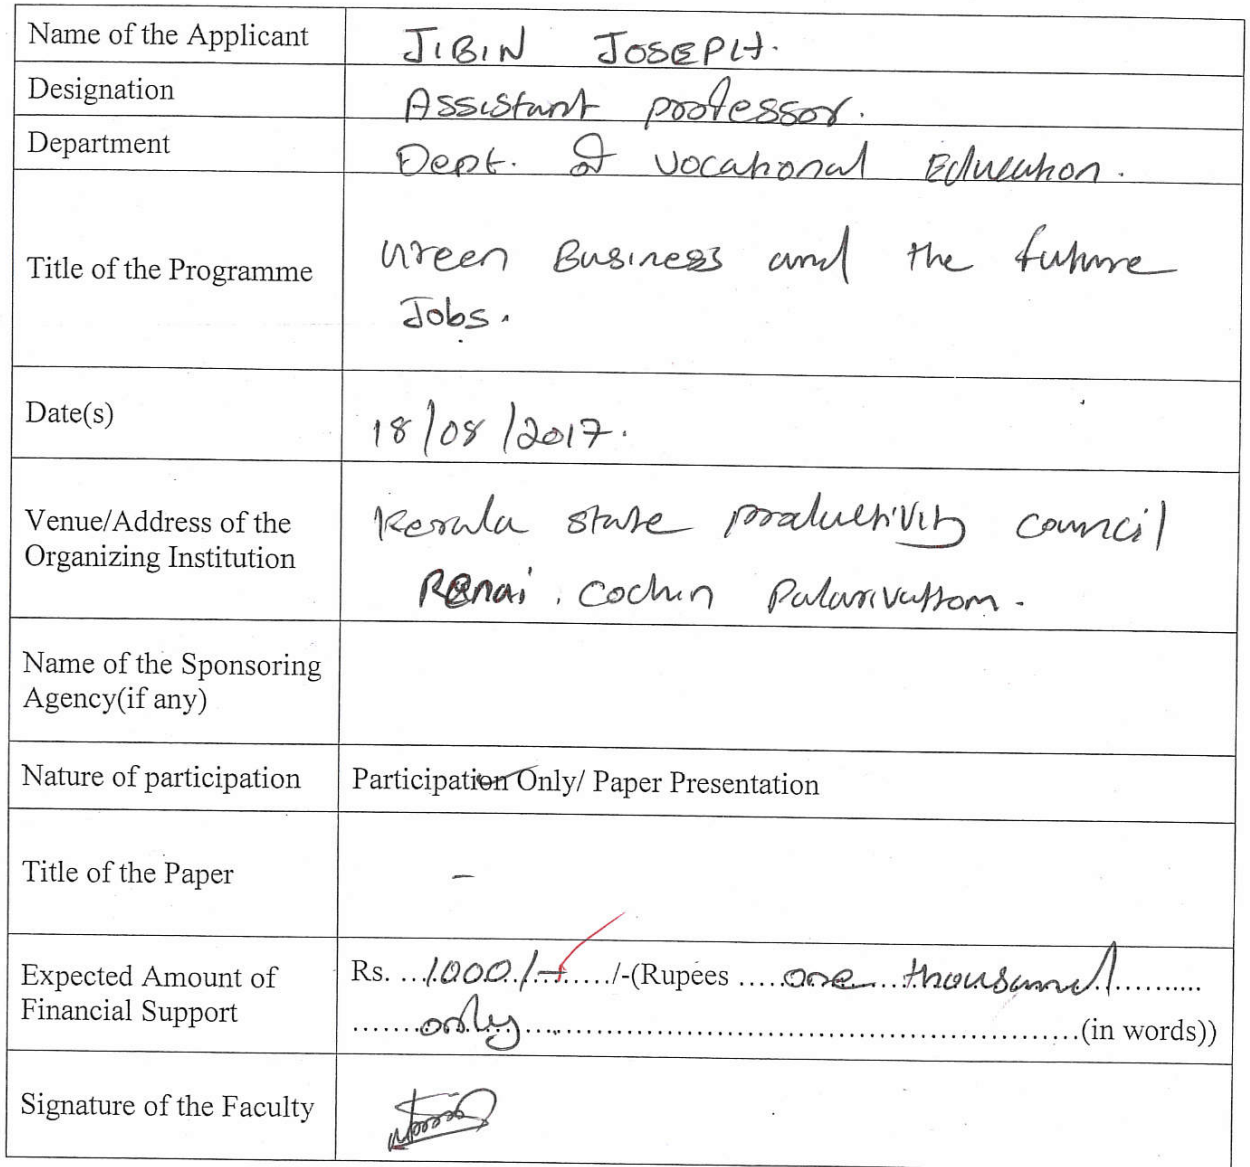 Name of the Applicant JIBIN JOSEPH.
Designation Assistant professor.
Department Dept. of Vocational Education.
Title of the Programme Green Business and the future
Jobs.
Date(s) 18/08/2017.
Venue/Address of the
Organizing Institution
Kerala state productivity council
Renai, Cochin Palarivattom.
Name of the Sponsoring
Agency(if any)
Nature of participation Participation Only/ Paper Presentation
Title of the Paper -
Expected Amount of
Financial Support
Rs. ...1000/-...../-(Rupees .....one thousand..........
.......only..........................................................(in words))
Signature of the Faculty